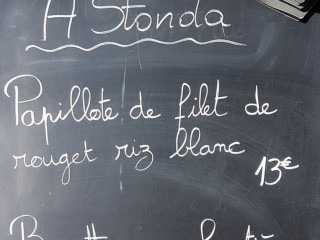 A Stonda
Papillote de filet de
rouget riz blanc
13€